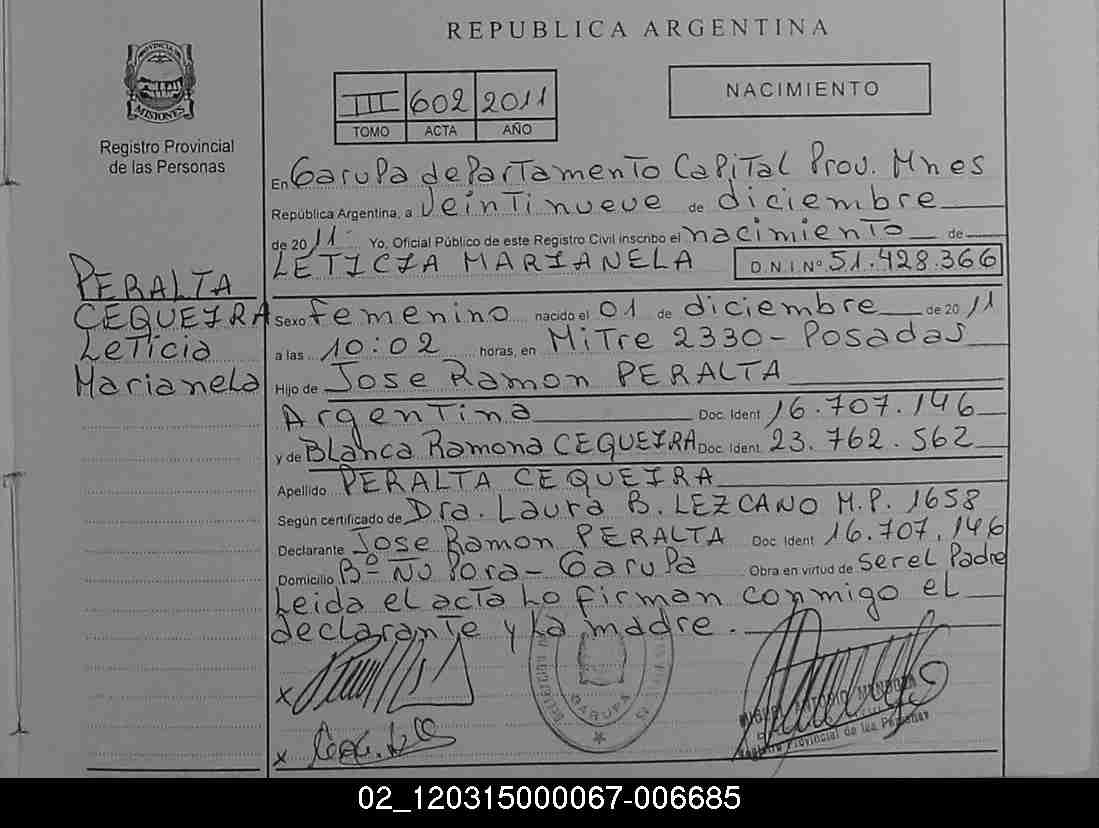 REPUBLICA ARGENTINA
PROVINCIA DE
MISIONES
Registro Provincial
de las Personas
III 602 2011
TOMO ACTA AÑO
NACIMIENTO
En Garupa departamento Capital Prov. Mnes
República Argentina, a Veintinueve de diciembre
de 2011 Yo, Oficial Público de este Registro Civil inscribo el nacimiento de
LETICIA MARIANELA D.N.I.Nº 51.428.366
PERALTA
CEQUEIRA
Leticia
Marianela
Sexo femenino nacido el 01 de diciembre de 2011
a las 10:02 horas, en Mitre 2330 - Posadas
Hijo de Jose Ramon PERALTA
Argentina Doc. Ident 16.707.146
y de Blanca Ramona CEQUEIRA Doc. Ident. 23.762.562
Apellido PERALTA CEQUEIRA
Según certificado de Dra. Laura B. LEZCANO M.P. 1658
Declarante Jose Ramon PERALTA Doc. Ident 16.707.146
Domicilio Bº Ñu Pora - Garupa Obra en virtud de ser el Padre
Leida el acta lo firman conmigo el
declarante y la madre.
x
x
GARUPA
MIGUEL ANTONIO MENDOZA
Registro Provincial de las Personas
02_120315000067-006685